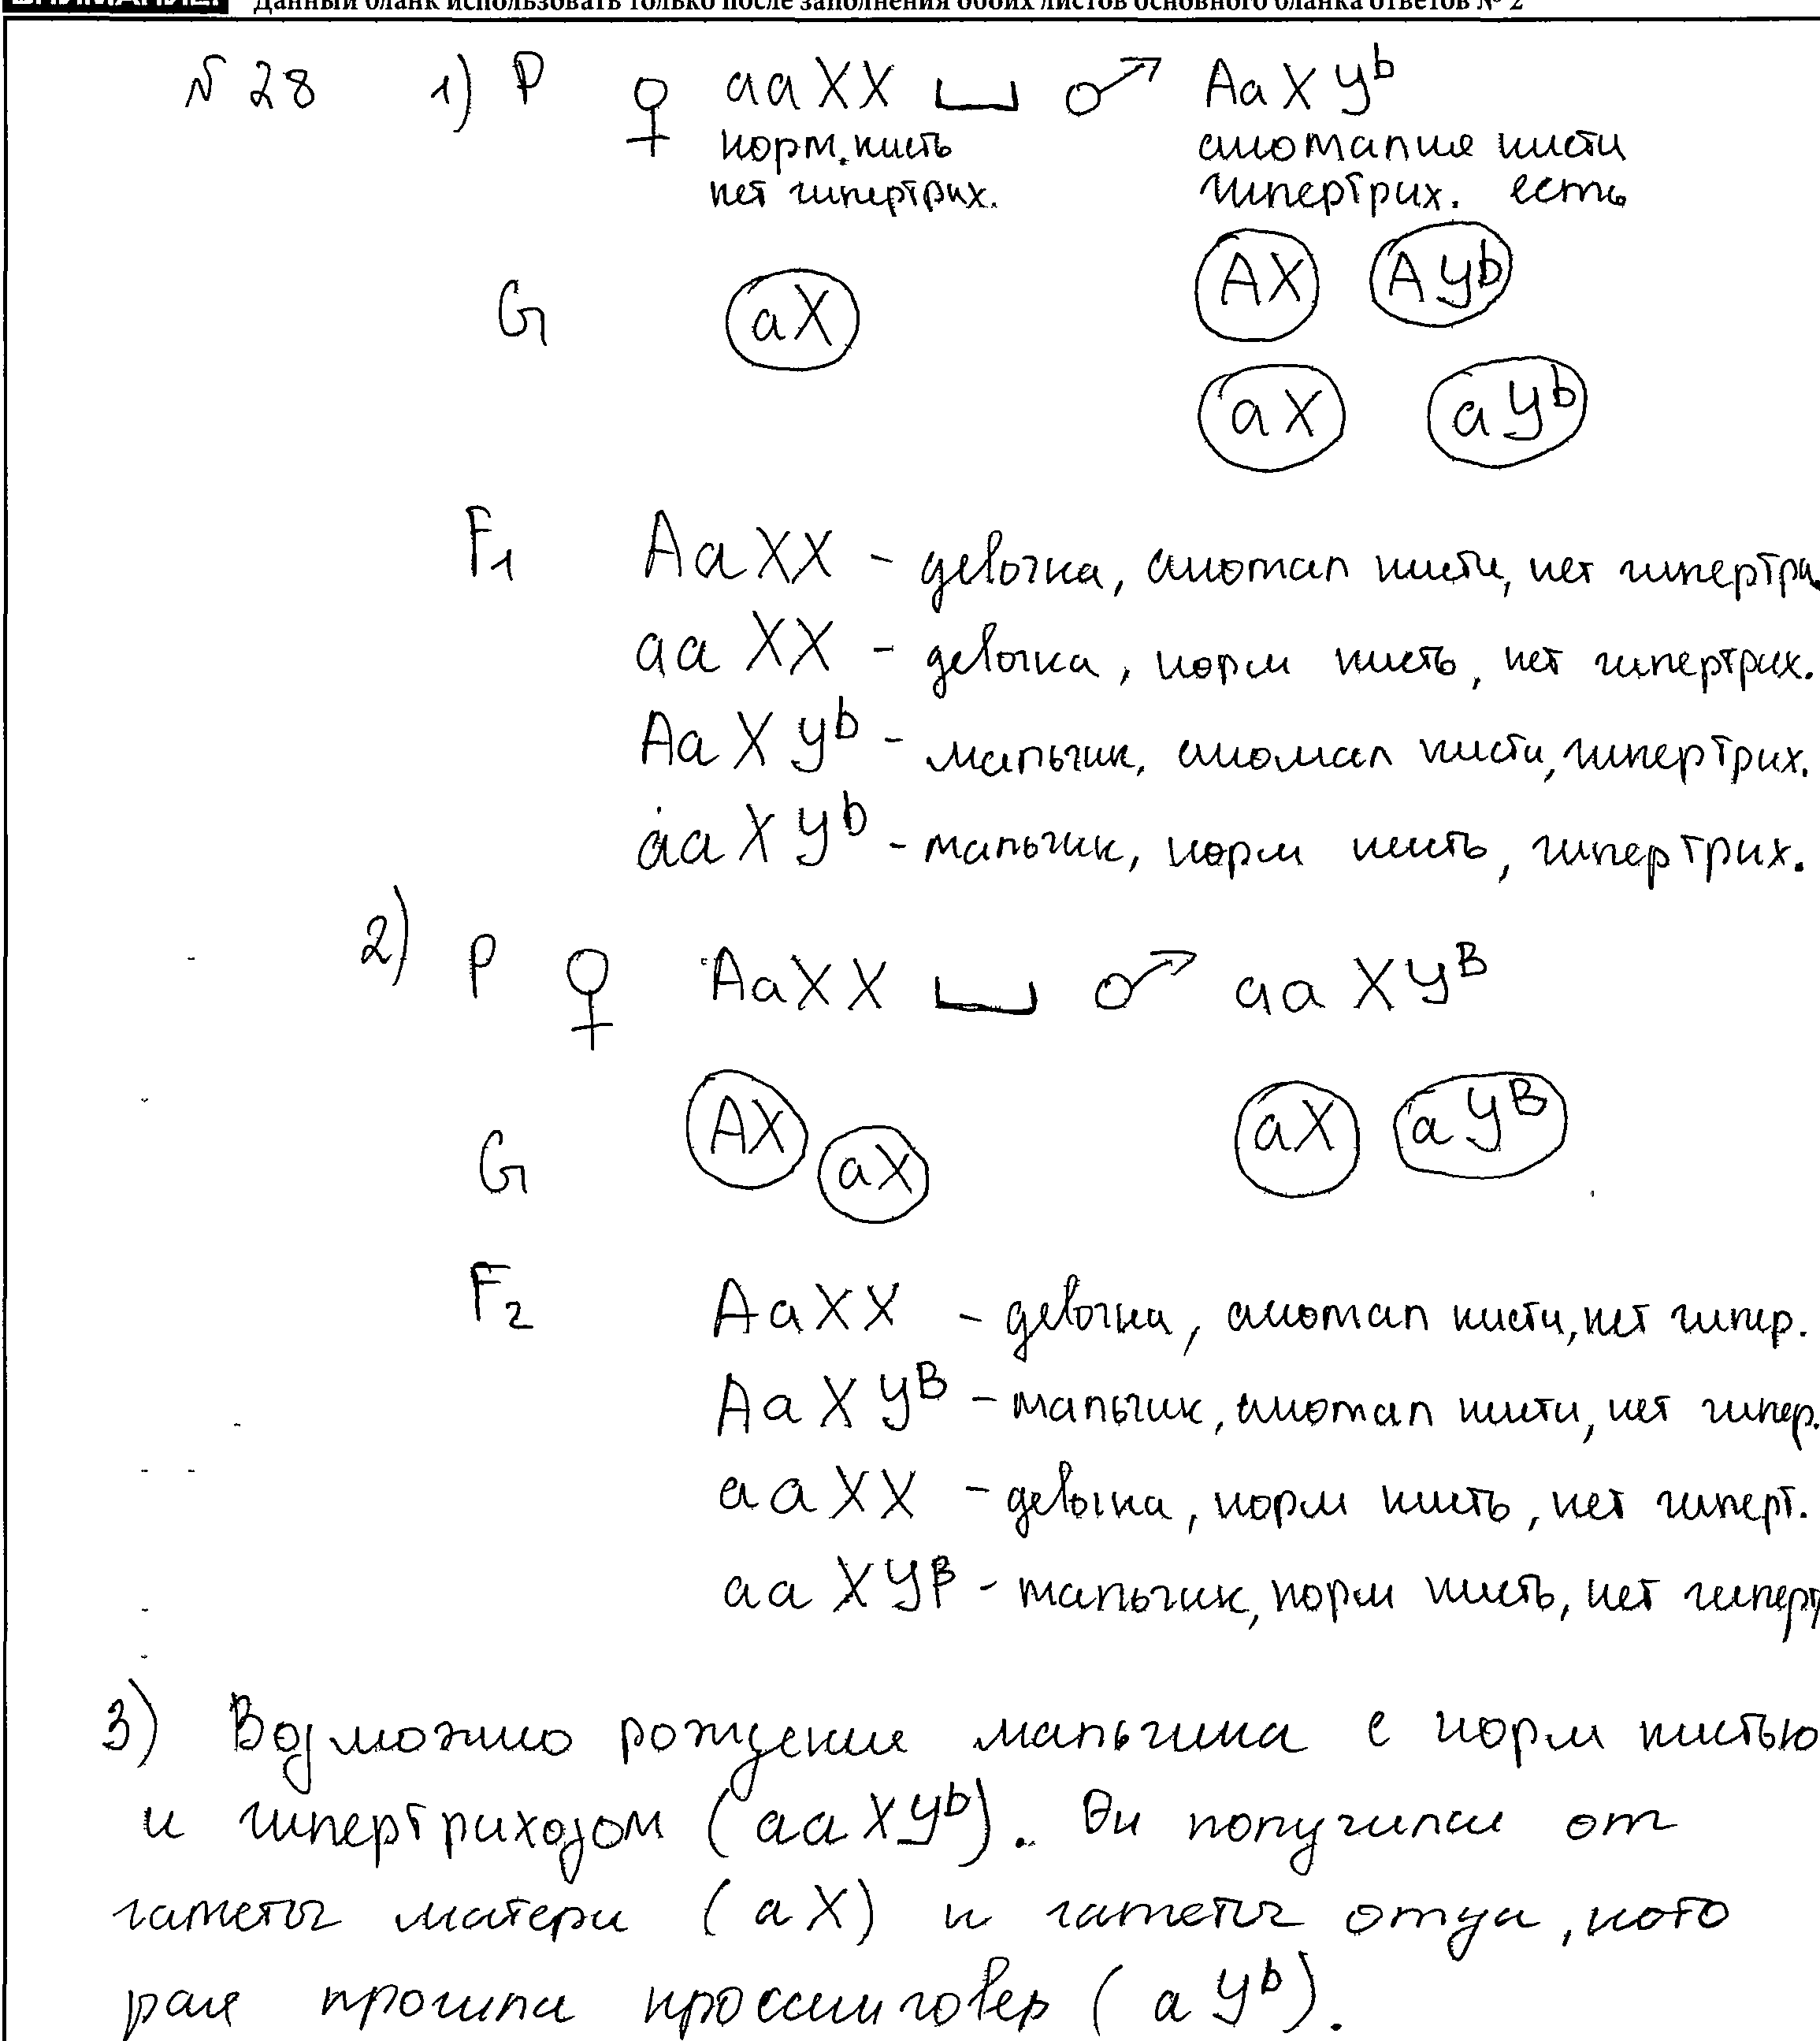 Данный бланк использовать только после заполнения обоих листов основного бланка ответов № 2
№ 28 1) P ♀ aaXX × ♂ AaXY^b
норм. кисть аномалия кисти
нет гипертрих. гипертрих. есть
AX AY^b
G aX
aX aY^b
F1 AaXX - девочка, аномал кисти, нет гипертри.
aa XX - девочка, норм кисть, нет гипертрих.
Aa X Y^b - мальчик, аномал кисти, гипертрих.
aa X Y^b - мальчик, норм кисть, гипертрих.
2) P ♀ AaXX × ♂ aa XY^B
G AX aX aX aY^B
F2 AaXX - девочка, аномал кисти, нет гипер.
Aa X Y^B - мальчик, аномал кисти, нет гипер.
aa XX - девочка, норм кисть, нет гиперт.
aa X Y^B - мальчик, норм кисть, нет гиперт
3) Возможно рождение мальчика с норм кистью
и гипертрихозом (aa XY^b). Он получился от
гаметы матери (aX) и гаметы отца, кото
рая прошла кроссинговер (aY^b).